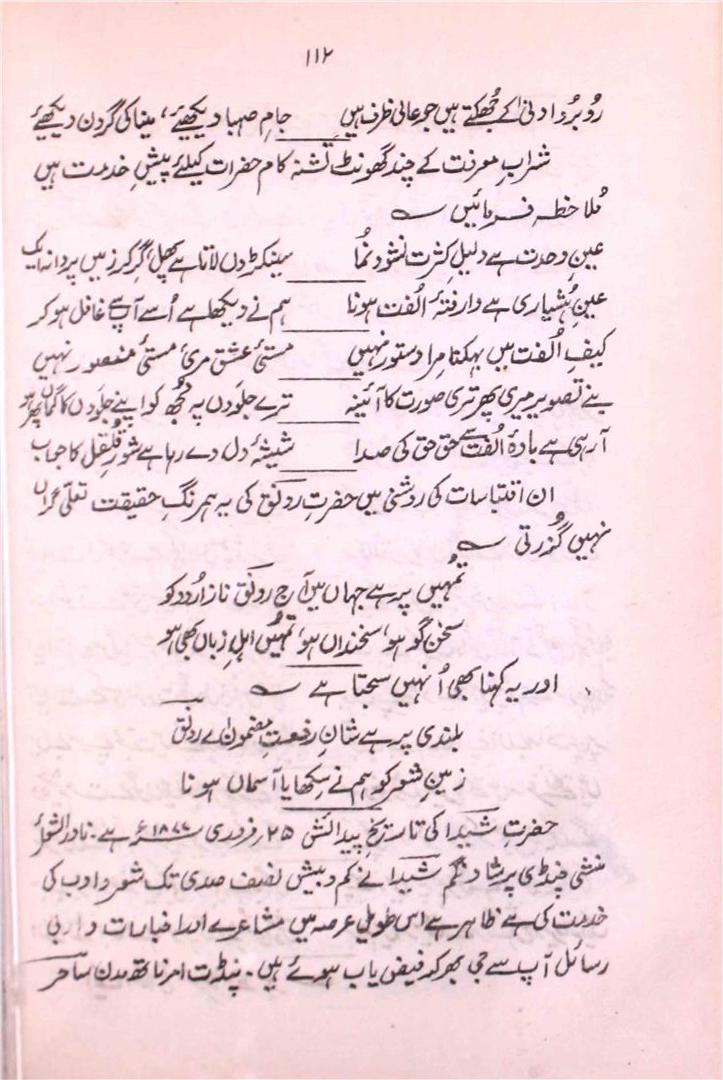 ۱۱۲
روبرو ادنیٰ کے جھکتے ہیں جو عالی ظرف ہیں جامِ صہبا دیکھئے، مینا کی گردن دیکھئے
شرابِ معرفت کے چند گھونٹ تشنہ کام حضرات کیلئے پیشِ خدمت ہیں
مُلاحظہ فرمائیں ؎
عینِ وحدت ہے دلیلِ کثرتِ نشوونُما سینکڑوں لاتا ہے پھل، گر کر زمیں پر دانہ ایک
عینِ ہُشیاری ہے وارفتۂ اُلفت ہونا ہم نے دیکھا ہے اُسے آپ سے غافل ہو کر
کیفِ اُلفت میں بہکنا مرا دستور نہیں مستیٔ عشق مری مستیٔ منصور نہیں
بنے تصویر میری پھر تری صورت کا آئینہ ترے جلووں پہ مُجھ کو اپنے جلووں کا گماں پھر ہو
آ رہی ہے بادۂ اُلفت سے حق حق کی صدا شیشۂ دل دے رہا ہے شورِ قُلقُل کا جواب
ان اقتباسات کی روشنی میں حضرتِ رونق کی یہ ہمرنگِ حقیقت تعلّی گراں
نہیں گُزرتی ؎
تمُہیں پر ہے جہاں میں آج رونق نازِ اُردو کو
سخن گو ہو، سخنداں ہو، تمُہیں اہلِ زباں بھی ہو
اور یہ کہنا بھی اُنہیں سجتا ہے ؎
بلندی پر ہے شانِ رفعتِ مضموں اے رونق
زمینِ شعر کو ہم نے سِکھایا آسماں ہونا
حضرتِ شیدا کی تاریخِ پیدائش ۲۵ فروری ۱۸۷۷ء ہے۔ نادر الشعرا
منشی چنڈی پرشاد نگم شیدا نے کم و بیش نصف صدی تک شعر و ادب کی
خدمت کی ہے ظاہر ہے اس طویل عرصہ میں مشاعرے اور اخبارات و ادبی
رسائل آپ سے جی بھر کر فیض یاب ہوئے ہیں۔ پنڈت امر ناتھ مدن ساحر